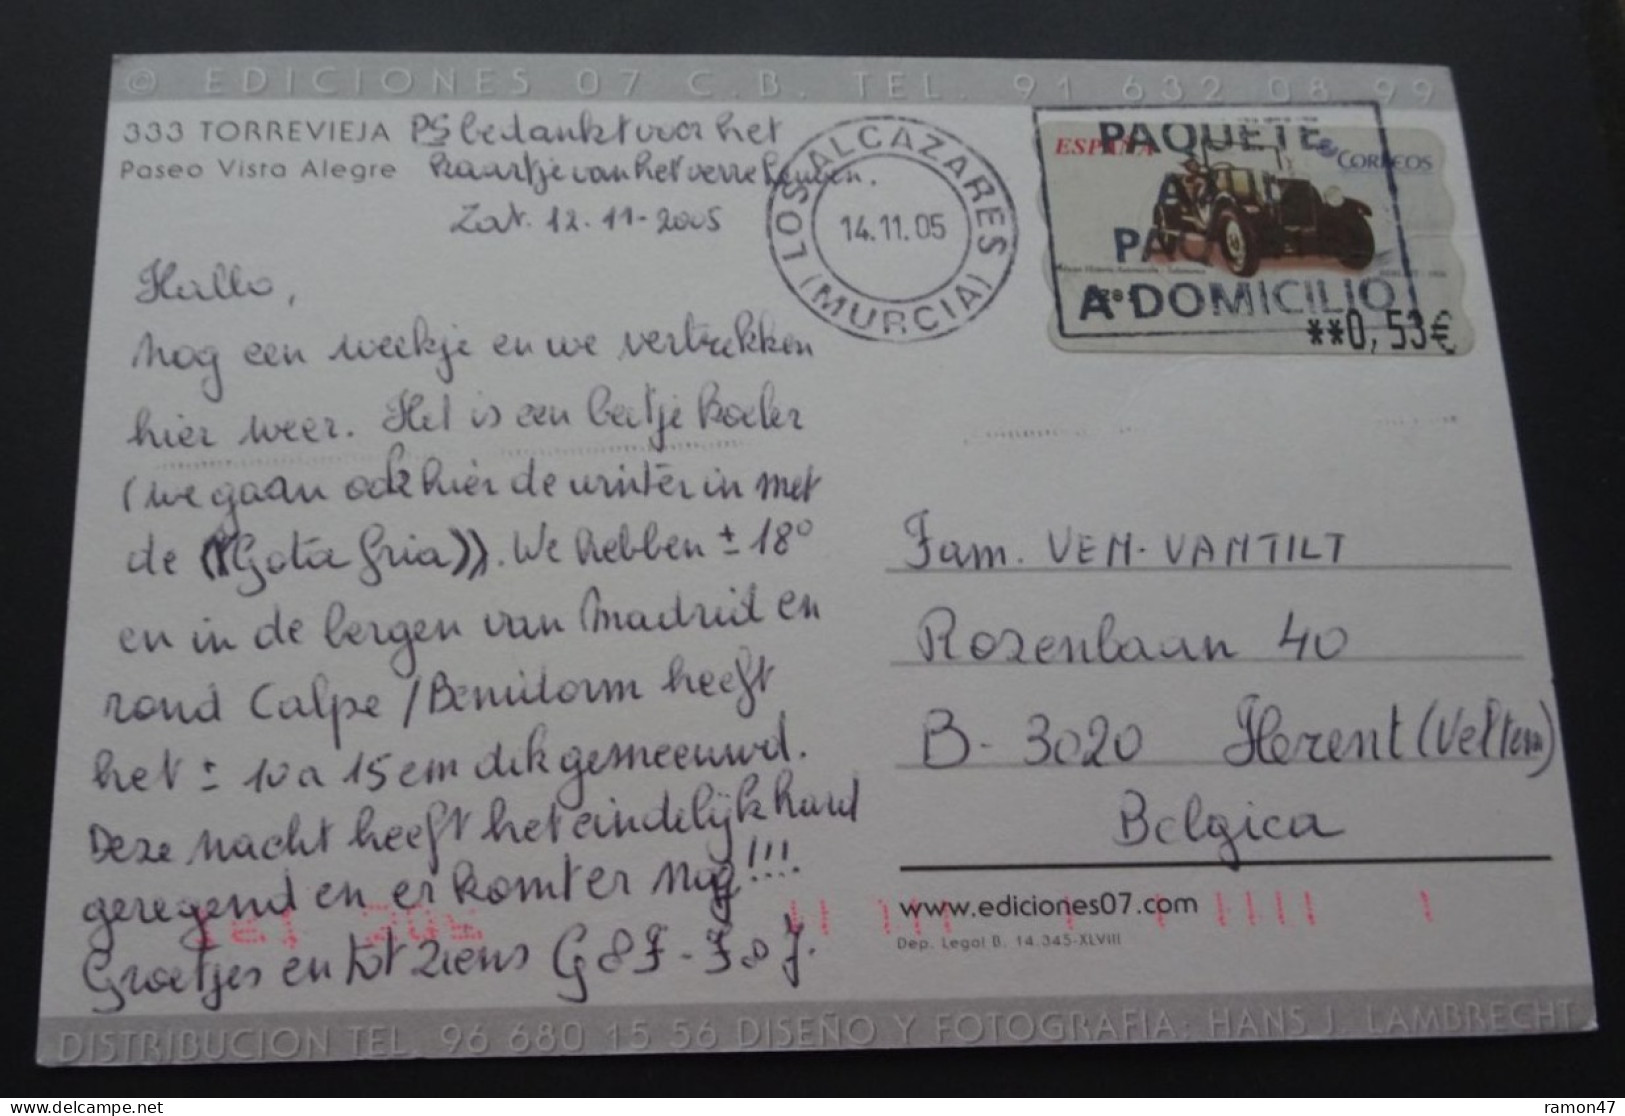 © EDICIONES 07 C.B. TEL. 91 632 08 99
333 TORREVIEJA
Paseo Vista Alegre
PS bedankt voor het
kaartje van het verre
Zat. 12-11-2005
LOS ALCAZARES (MURCIA)
14.11.05
ESPAÑA
CORREOS
PAQUETE
PAQ
A DOMICILIO
**0,53€
Hallo,
Nog een weekje en we vertrekken
hier weer. Het is een beetje koeler
(we gaan ook hier de winter in met
de ((Gota fria)). We hebben ± 18°
en in de bergen van Madrid en
rond Calpe/Benidorm heeft
het ± 10 a 15 cm dik gesneeuwd.
Deze nacht heeft het eindelijk hard
geregend en er komt er nog!!!
Groetjes en tot ziens G&F-F&J.
Fam. VEN-VANTILT
Rozenlaan 40
B-3020 Herent (Veltem)
Belgica
www.ediciones07.com
Dep. Legal B. 14.345-XLVIII
DISTRIBUCION TEL. 96 680 15 56 DISEÑO Y FOTOGRAFIA: HANS J. LAMBRECHT
ramon47